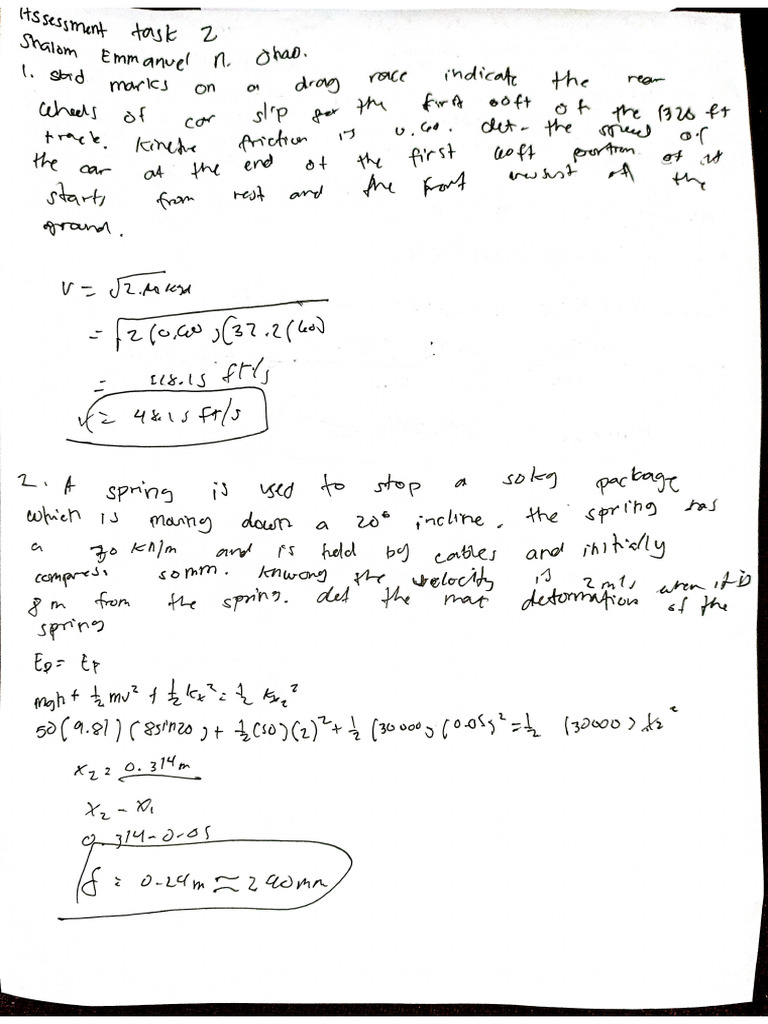 Assessment task 2
Shalom Emmanuel N. Ohao.
1. skid marks on a drag race indicate the rear
wheels of car slip for the first 60ft of the 1320 ft
track. Kinetic friction is 0.60. det- the speed of
the car at the end of the first 60ft portion of it
starts from rest and the front wheels off the
ground.
V = √2
= √2(0.60)(32.2(60)
= 48.15 ft/s
V = 48.15 ft/s
2. A spring is used to stop a 50kg package
which is moving down a 20° incline. the spring has
a 30 kN/m and is held by cables and initially
compress 50mm. knwong the velocity is 2 m/s when it is
8 m from the spring. det the max deformation of the
spring
mgh + ½ mv² + ½ kx² = ½ kx₂²
50(9.81)(8sin20) + ½(50)(2)² + ½(30000)(0.05)² = ½ (30000) x₂²
x₂ = 0.314m
x₂ - x₁
0.314-0.05
f = 0.24m ≈ 240mm